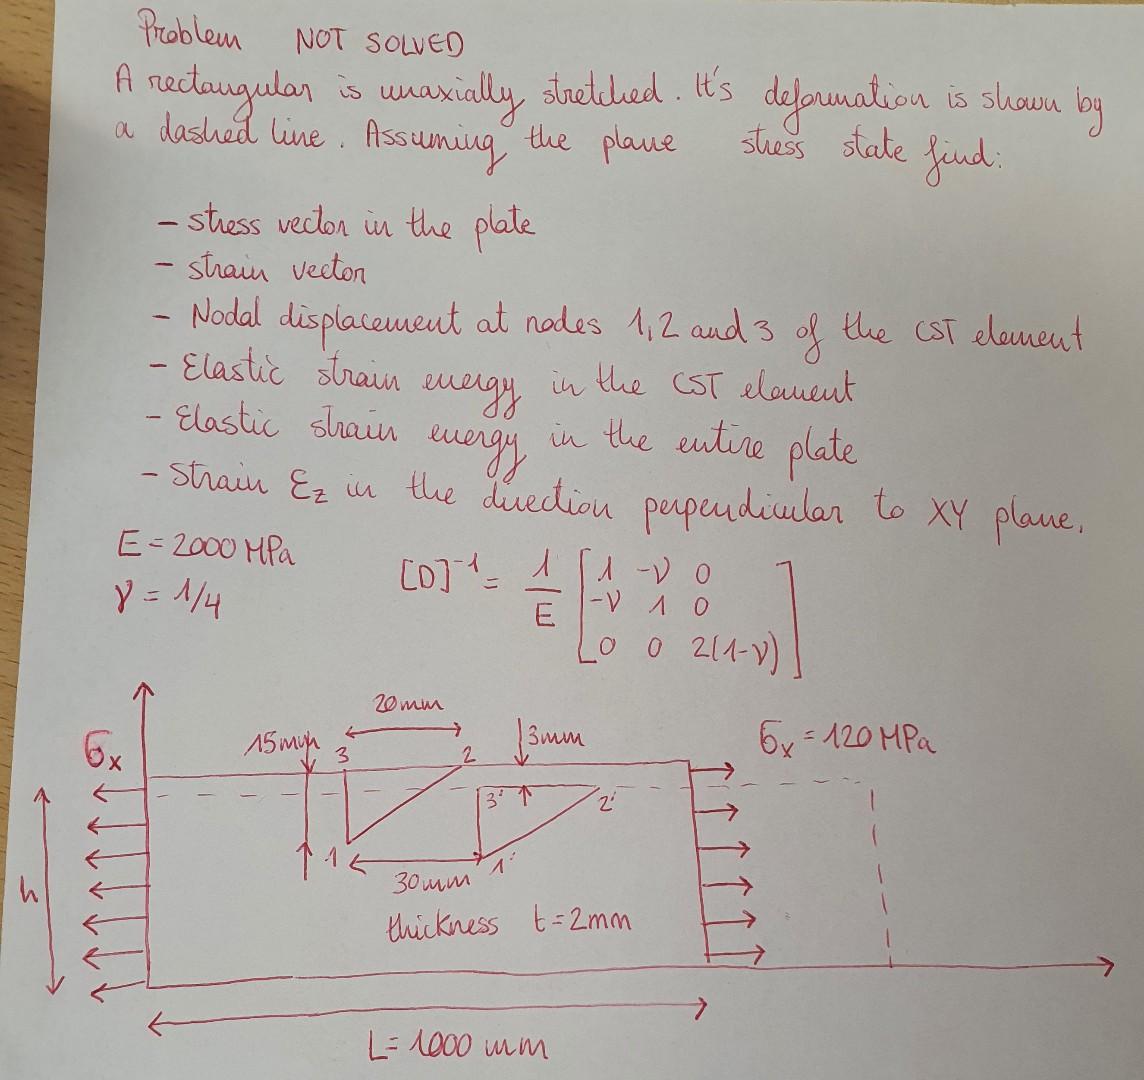 Problem NOT SOLVED
A rectangular is unaxially stretched. It's deformation is shown by
a dashed line. Assuming the plane stress state find:
- stress vector in the plate
- strain vector
- Nodal displacement at nodes 1,2 and 3 of the CST element
- Elastic strain energy in the CST element
- Elastic strain energy in the entire plate
- Strain εz in the direction perpendicular to XY plane.
E = 2000 MPa
ν = 1/4
[D]⁻¹ = 1/E [1 -ν 0
-ν 1 0
0 0 2(1-ν)]
20mm
15mm
3
2
3mm
σx
σx = 120 MPa
3'
2'
1
1'
30mm
h
thickness t = 2mm
L = 1000 mm